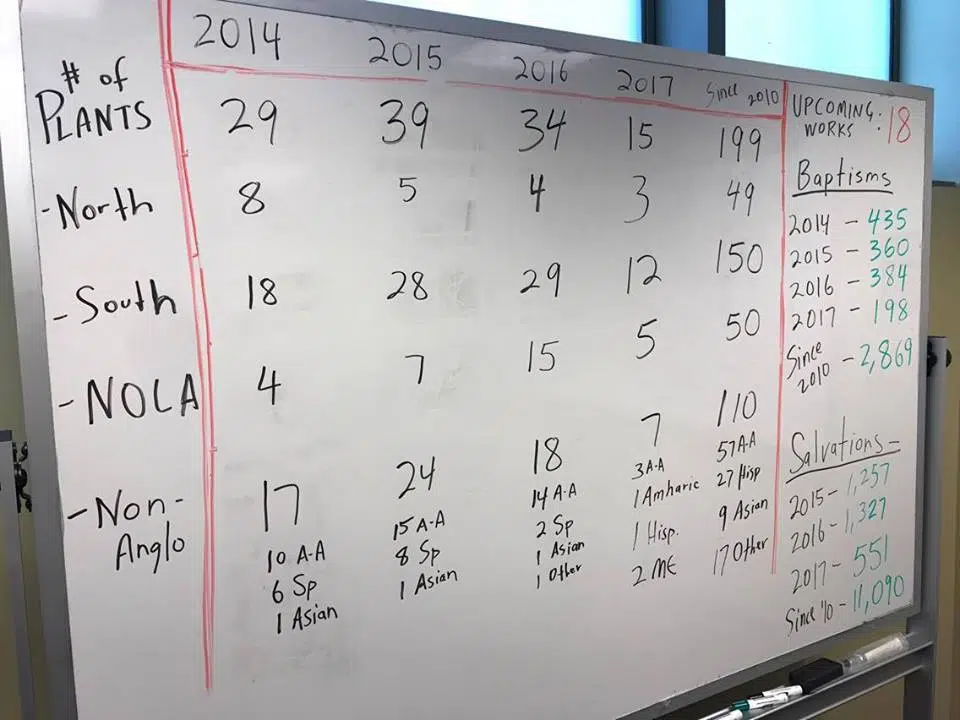 # of PLANTS 2014 2015 2016 2017 Since 2010
29 39 34 15 199
-North 8 5 4 3 49
-South 18 28 29 12 150
-NOLA 4 7 15 5 50
-Non-Anglo 17 24 18 7 110
10 A-A
6 Sp
1 Asian
15 A-A
8 Sp
1 Asian
14 A-A
2 Sp
1 Asian
1 Other
3 A-A
1 Amharic
1 Hisp.
2 ME
57 A-A
27 Hisp
9 Asian
17 Other
UPCOMING WORKS: 18
Baptisms
2014 - 435
2015 - 360
2016 - 384
2017 - 198
Since 2010 - 2,869
Salvations-
2015- 1,257
2016- 1,327
2017- 551
Since '10- 11,090